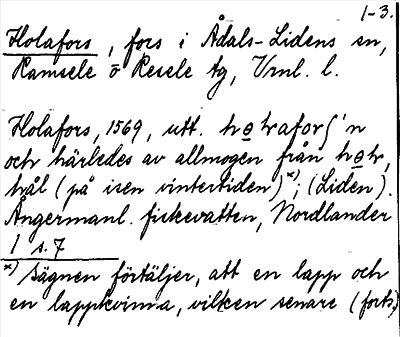 1-3.
Holafors, fors i Ådals-Lidens sn,
Ramsele o Resele tg, Vrnl. l.
Holafors, 1569, utt. hɵtraforʃ'n
och härledes av allmogen från hɵtr,
hål (på isen vintertiden)x); (Liden).
Ångermanl. fiskevatten, Nordlander
1 s. 7
x) Sägnen förtäljer, att en lapp och
en lappkvinna, vilken senare (forts.)